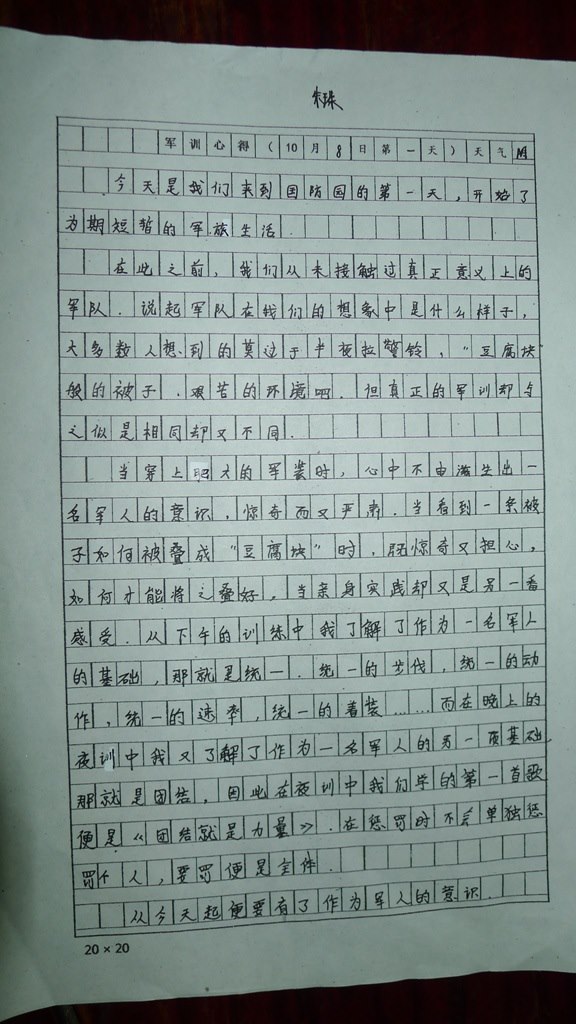 朱珠
军训心得（10月8日第一天）天气阴
今天是我们来到国防园的第一天，开始了
为期短暂的军旅生活．
在此之前，我们从未接触过真正意义上的
军队．说起军队在我们的想象中是什么样子，
大多数人想到的莫过于半夜拉警铃，“豆腐块
般的被子、艰苦的环境吧．但真正的军训却与
之似是相同却又不同．
当穿上 的军装时，心中不由滋生出一
名军人的意识，惊奇而又严肃．当看到一条被
子如何被叠成“豆腐块”时，既惊奇又担心，
如何才能将之叠好，当亲身实践却又是另一番
感受．从下午的训练中我了解了作为一名军人
的基础，那就是统一．统一的步伐，统一的动
作，统一的速率，统一的着装……而在晚上的
夜训中我又了解了作为一名军人的另一项基础
那就是团结，因此在夜训中我们学的第一首歌
便是《团结就是力量》．在惩罚时不会单独惩
罚个人，要罚便是全体．
从今天起便要有了作为军人的意识．
20×20